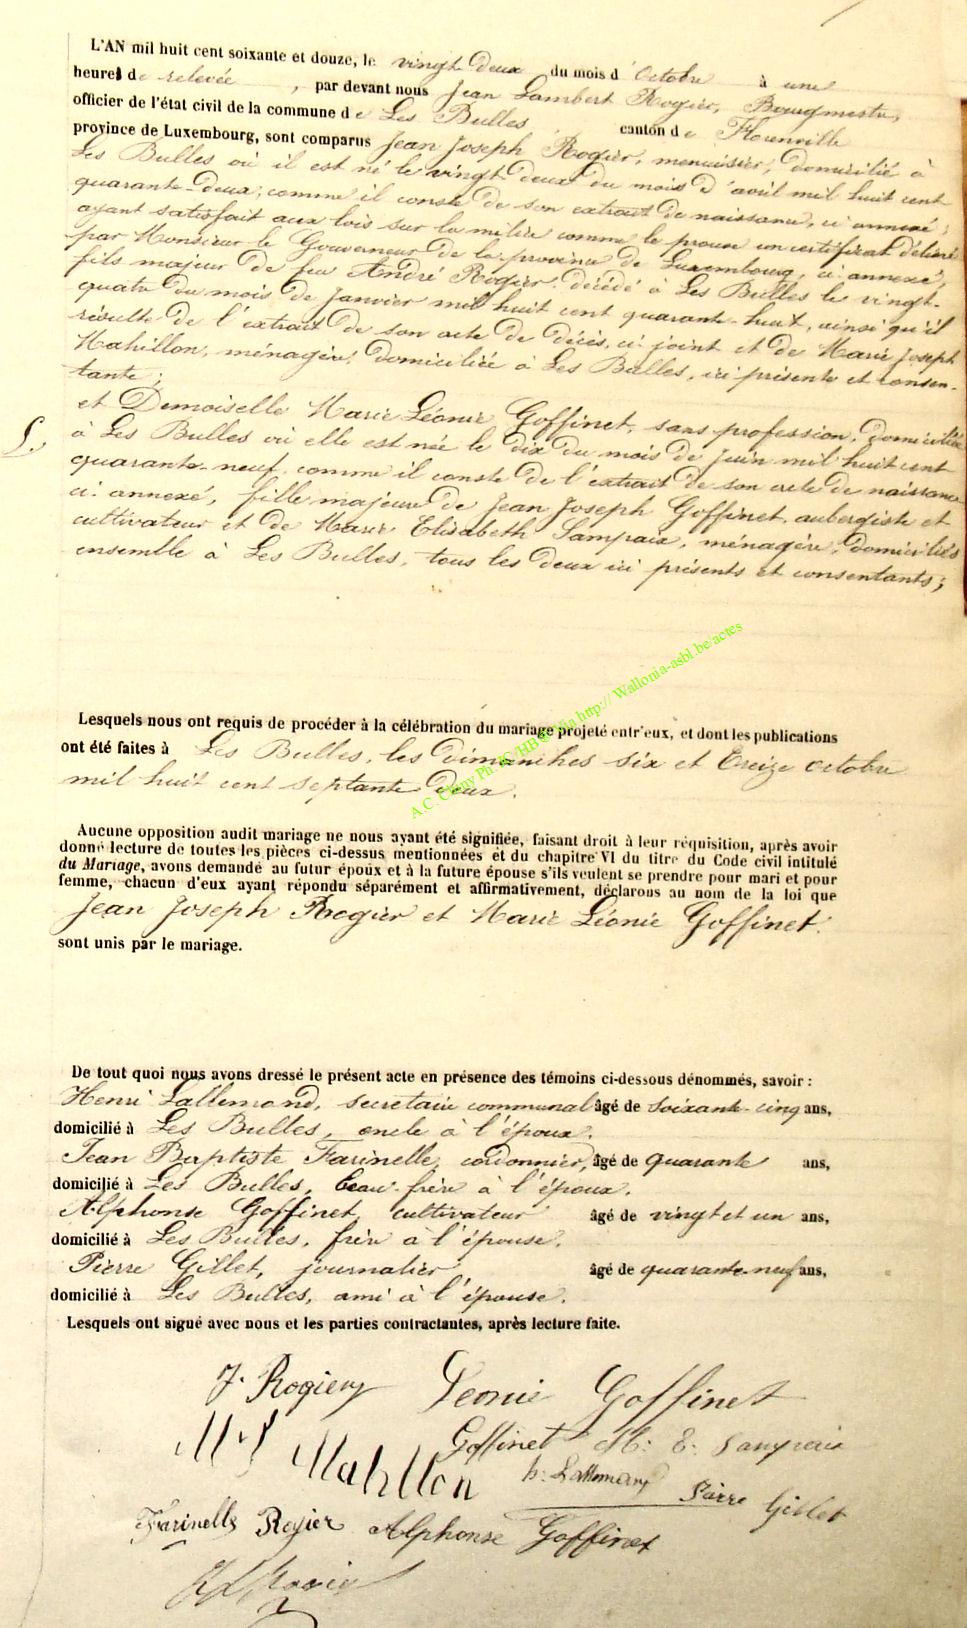 L'AN mil huit cent soixante et douze, le vingt deux du mois d'octobre à une
heure de relevée, par devant nous Jean Lambert Rogier, Bourgmestre,
officier de l'état civil de la commune de Les Bulles canton de Florenville
province de Luxembourg, sont comparus Jean Joseph Rogier, menuisier, domicilié à
Les Bulles où il est né le vingt-deux du mois d'avril mil huit cent
quarante-deux, comme il conste de son extrait de naissance, ci annexé;
ayant satisfait aux lois sur la milice comme le prouve un certificat délivré
par Monsieur le Gouverneur de la province de Luxembourg, ci annexé,
fils majeur de feu André Rogier, décédé à Les Bulles le vingt-
quatre du mois de Janvier mil huit cent quarante-huit, ainsi qu'il
résulte de l'extrait de son acte de décès, ci joint et de Marie Joseph
Mahillon, ménagère, domiciliée à Les Bulles, ici présente et consen-
tante;
et Demoiselle Marie Léonie Goffinet, sans profession, domiciliée
à Les Bulles où elle est née le dix du mois de Juin mil huit cent
quarante-neuf, comme il conste de l'extrait de son acte de naissance
ci-annexé, fille majeure de Jean Joseph Goffinet, aubergiste et
cultivateur et de Marie Elisabeth Sampaix, ménagère, domiciliés
ensemble à Les Bulles, tous les deux ici présents et consentants;
Lesquels nous ont requis de procéder à la célébration du mariage projeté entr'eux, et dont les publications
ont été faites à Les Bulles, les dimanches six et treize octobre
mil huit cent septante deux.
Aucune opposition audit mariage ne nous ayant été signifiée, faisant droit à leur réquisition, après avoir
donné lecture de toutes les pièces ci-dessus mentionnées et du chapitre VI du titre du Code civil intitulé
du Mariage, avons demandé au futur époux et à la future épouse s'ils veulent se prendre pour mari et pour
femme, chacun d'eux ayant répondu séparément et affirmativement, déclarons au nom de la loi que
Jean Joseph Rogier et Marie Léonie Goffinet.
sont unis par le mariage.
De tout quoi nous avons dressé le présent acte en présence des témoins ci-dessous dénommés, savoir :
Henri Lallemand, secrétaire communal âgé de soixante-cinq ans,
domicilié à Les Bulles, oncle à l'époux.
Jean Baptiste Farinelle, cordonnier, âgé de quarante ans,
domicilié à Les Bulles, beau-frère à l'époux.
Alphonse Goffinet, cultivateur âgé de vingt et un ans,
domicilié à Les Bulles, frère à l'épouse.
Pierre Gillet, journalier âgé de quarante-neuf ans,
domicilié à Les Bulles, ami à l'épouse.
Lesquels ont signé avec nous et les parties contractantes, après lecture faite.
J. Rogier Leonie Goffinet
M J Mahillon Goffinet M: E: Sampaix
h: Lallemand Pierre Gillet
Farinelle Rogier Alphonse Goffinet
J L Rogier